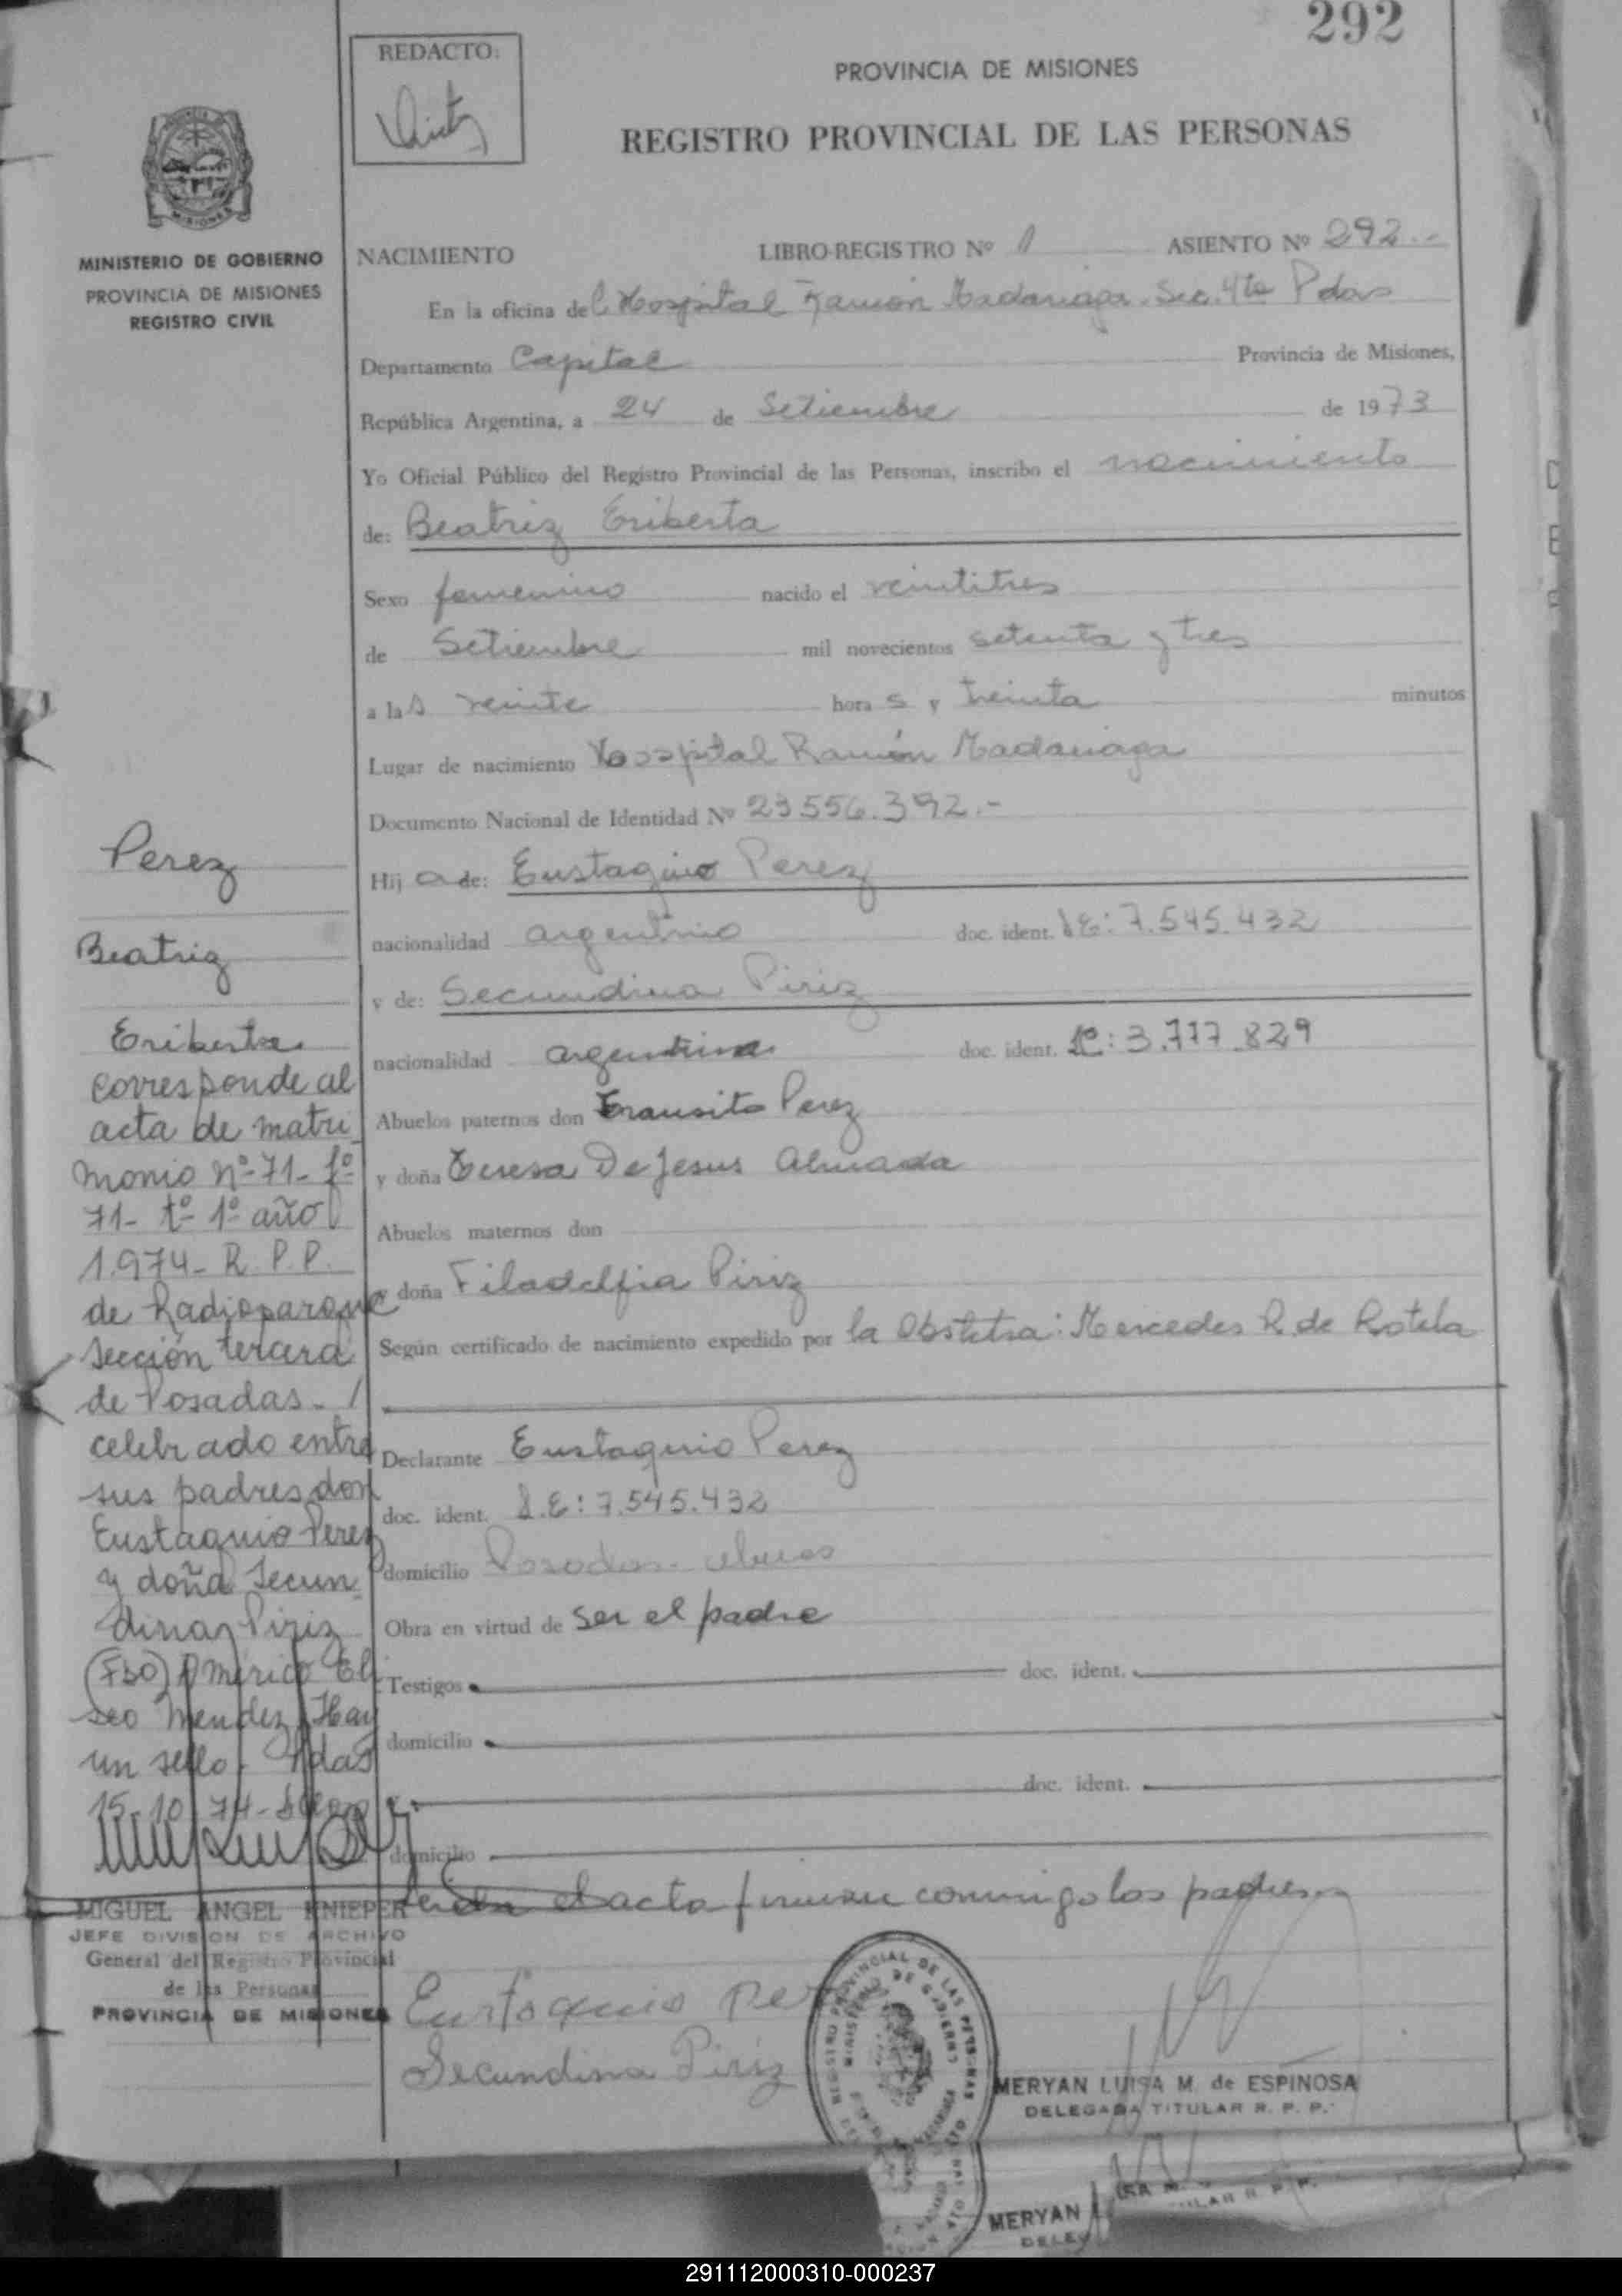 292
REDACTO:
PROVINCIA DE MISIONES
REGISTRO PROVINCIAL DE LAS PERSONAS
MINISTERIO DE GOBIERNO
PROVINCIA DE MISIONES
REGISTRO CIVIL
NACIMIENTO LIBRO-REGISTRO Nº 1 ASIENTO Nº 292.-
En la oficina del Hospital Ramón Madariaga. Sec. 4ta Pdas
Departamento Capital Provincia de Misiones,
República Argentina, a 24 de Setiembre de 1973
Yo Oficial Público del Registro Provincial de las Personas, inscribo el nacimiento
de: Beatriz Eriberta
Sexo femenino nacido el veintitres
de Setiembre mil novecientos setenta y tres
a las veinte horas y treinta minutos
Lugar de nacimiento Hospital Ramón Madariaga
Documento Nacional de Identidad Nº 23.556.392.-
Hija de: Eustaquio Perez
nacionalidad argentino doc. ident. L.E: 7.545.432
y de: Secundina Piriz
nacionalidad argentina doc. ident. LC: 3.717.829
Abuelos paternos don Transito Perez
y doña Teresa De Jesus Almada
Abuelos maternos don
y doña Filadelfia Piriz
Según certificado de nacimiento expedido por la Obstetra: Mercedes R. de Rotela
Declarante Eustaquio Perez
doc. ident. L.E: 7.545.432
domicilio Posadas.
Obra en virtud de ser el padre
Testigos doc. ident.
domicilio
y doc. ident.
domicilio
Leida el acta firman conmigo los padres
Eustaquio Perez
Secundina Piriz
MERYAN LUISA M. de ESPINOSA
DELEGADA TITULAR R. P. P.
Perez
Beatriz
Eriberta
corresponde al
acta de matri
monio nº 71- fº
71- tº 1º año
1.974- R. P. P.
de Radioparque
Sección tercera
de Posadas.
celebrado entre
sus padres don
Eustaquio Perez
y doña Secun
dina Piriz
(Fdo) Americo Eli
seo Mendez Hay
un sello. Pdas
15-10-74-
MIGUEL ANGEL KNIEPER
JEFE DIVISION DE ARCHIVO
General del Registro Provincial
de las Personas
PROVINCIA DE MISIONES
MERYAN
291112000310-000237